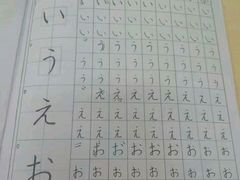 い
う
え
お
いいいいいいいい
いいいいいいいい
いいいいいいいい
ううううううう
うううううううう
うううううううう
えええええええ
ええええええええ
ええええええええ
おおおおおおお
おおおおおおおお